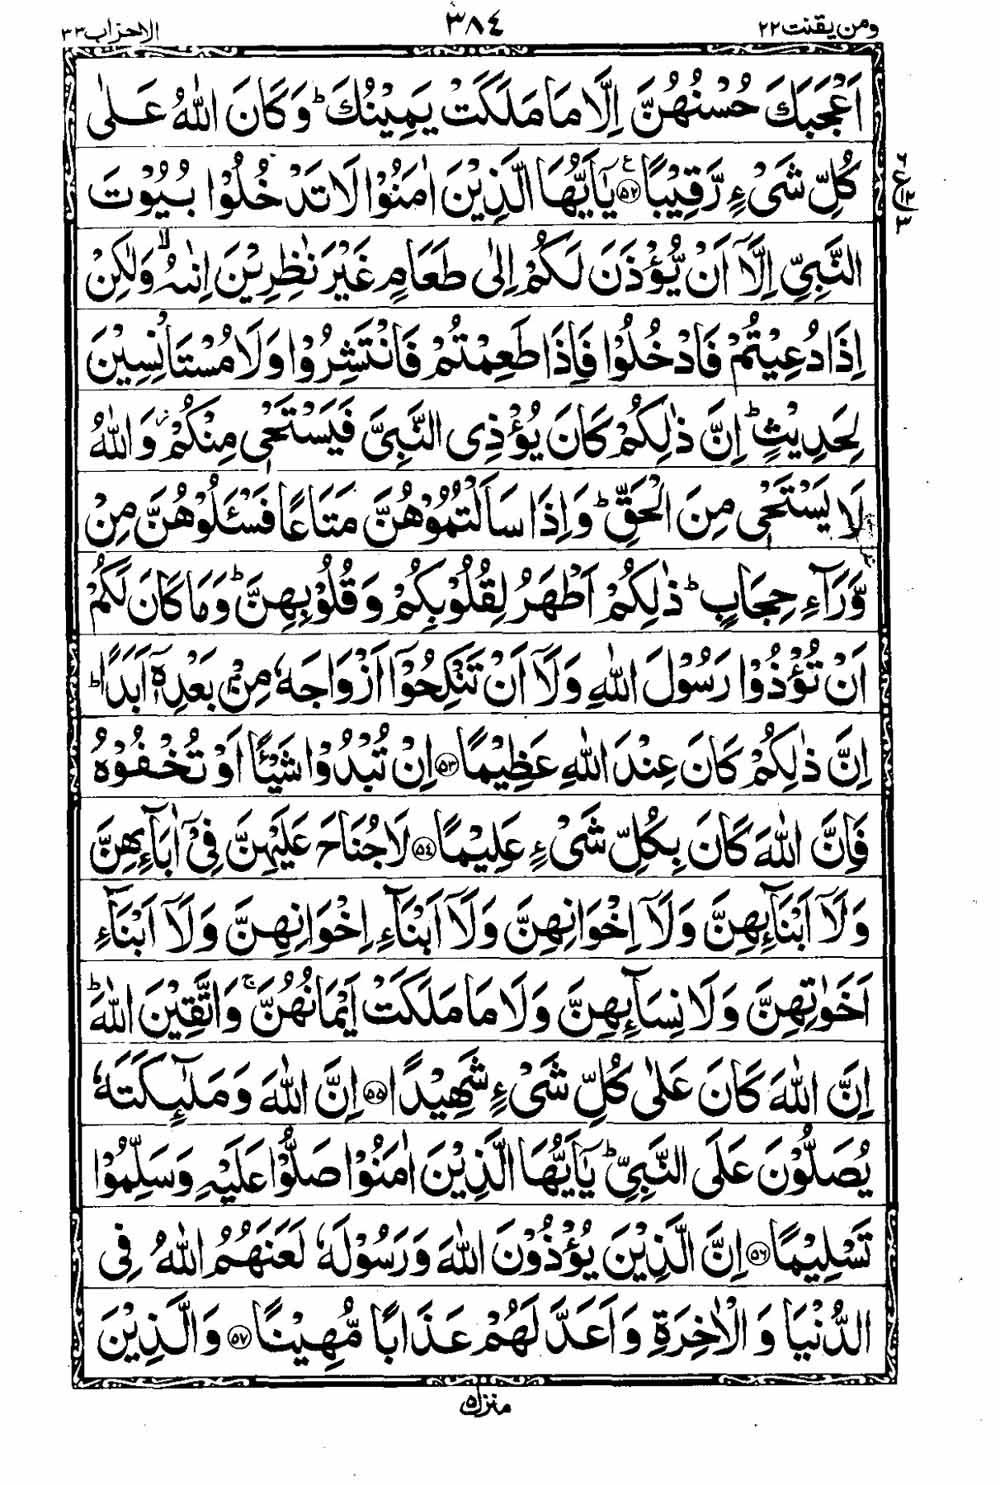 ومن يقنت ٢٢
٣٨٤
الاحزاب ٣٣
اَعْجَبَكَ حُسْنُهُنَّ اِلَّا مَا مَلَكَتْ يَمِيْنُكَ ؕ وَكَانَ اللّٰهُ عَلٰى
كُلِّ شَىْءٍ رَّقِيْبًا ﴿٥٢﴾ يٰۤاَيُّهَا الَّذِيْنَ اٰمَنُوْا لَا تَدْخُلُوْا بُيُوْتَ
النَّبِىِّ اِلَّاۤ اَنْ يُّؤْذَنَ لَكُمْ اِلٰى طَعَامٍ غَيْرَ نٰظِرِيْنَ اِنٰىهُ ۙ وَلٰكِنْ
اِذَا دُعِيْتُمْ فَادْخُلُوْا فَاِذَا طَعِمْتُمْ فَانْتَشِرُوْا وَلَا مُسْتَاْنِسِيْنَ
لِحَدِيْثٍ ؕ اِنَّ ذٰلِكُمْ كَانَ يُؤْذِى النَّبِىَّ فَيَسْتَحْىٖ مِنْكُمْ ؗ وَاللّٰهُ
لَا يَسْتَحْىٖ مِنَ الْحَقِّ ؕ وَاِذَا سَاَلْتُمُوْهُنَّ مَتَاعًا فَسْـَٔلُوْهُنَّ مِنْ
وَّرَآءِ حِجَابٍ ؕ ذٰلِكُمْ اَطْهَرُ لِقُلُوْبِكُمْ وَقُلُوْبِهِنَّ ؕ وَمَا كَانَ لَكُمْ
اَنْ تُؤْذُوْا رَسُوْلَ اللّٰهِ وَلَاۤ اَنْ تَنْكِحُوْۤا اَزْوَاجَهٗ مِنْۢ بَعْدِهٖۤ اَبَدًا ؕ
اِنَّ ذٰلِكُمْ كَانَ عِنْدَ اللّٰهِ عَظِيْمًا ﴿٥٣﴾ اِنْ تُبْدُوْا شَيْـًٔا اَوْ تُخْفُوْهُ
فَاِنَّ اللّٰهَ كَانَ بِكُلِّ شَىْءٍ عَلِيْمًا ﴿٥٤﴾ لَا جُنَاحَ عَلَيْهِنَّ فِىْۤ اٰبَآئِهِنَّ
وَلَاۤ اَبْنَآئِهِنَّ وَلَاۤ اِخْوَانِهِنَّ وَلَاۤ اَبْنَآءِ اِخْوَانِهِنَّ وَلَاۤ اَبْنَآءِ
اَخَوٰتِهِنَّ وَلَا نِسَآئِهِنَّ وَلَا مَا مَلَكَتْ اَيْمَانُهُنَّ ۚ وَاتَّقِيْنَ اللّٰهَ ؕ
اِنَّ اللّٰهَ كَانَ عَلٰى كُلِّ شَىْءٍ شَهِيْدًا ﴿٥٥﴾ اِنَّ اللّٰهَ وَمَلٰٓئِكَتَهٗ
يُصَلُّوْنَ عَلَى النَّبِىِّ ؕ يٰۤاَيُّهَا الَّذِيْنَ اٰمَنُوْا صَلُّوْا عَلَيْهِ وَسَلِّمُوْا
تَسْلِيْمًا ﴿٥٦﴾ اِنَّ الَّذِيْنَ يُؤْذُوْنَ اللّٰهَ وَرَسُوْلَهٗ لَعَنَهُمُ اللّٰهُ فِى
الدُّنْيَا وَالْاٰخِرَةِ وَاَعَدَّ لَهُمْ عَذَابًا مُّهِيْنًا ﴿٥٧﴾ وَالَّذِيْنَ
منزل ٥